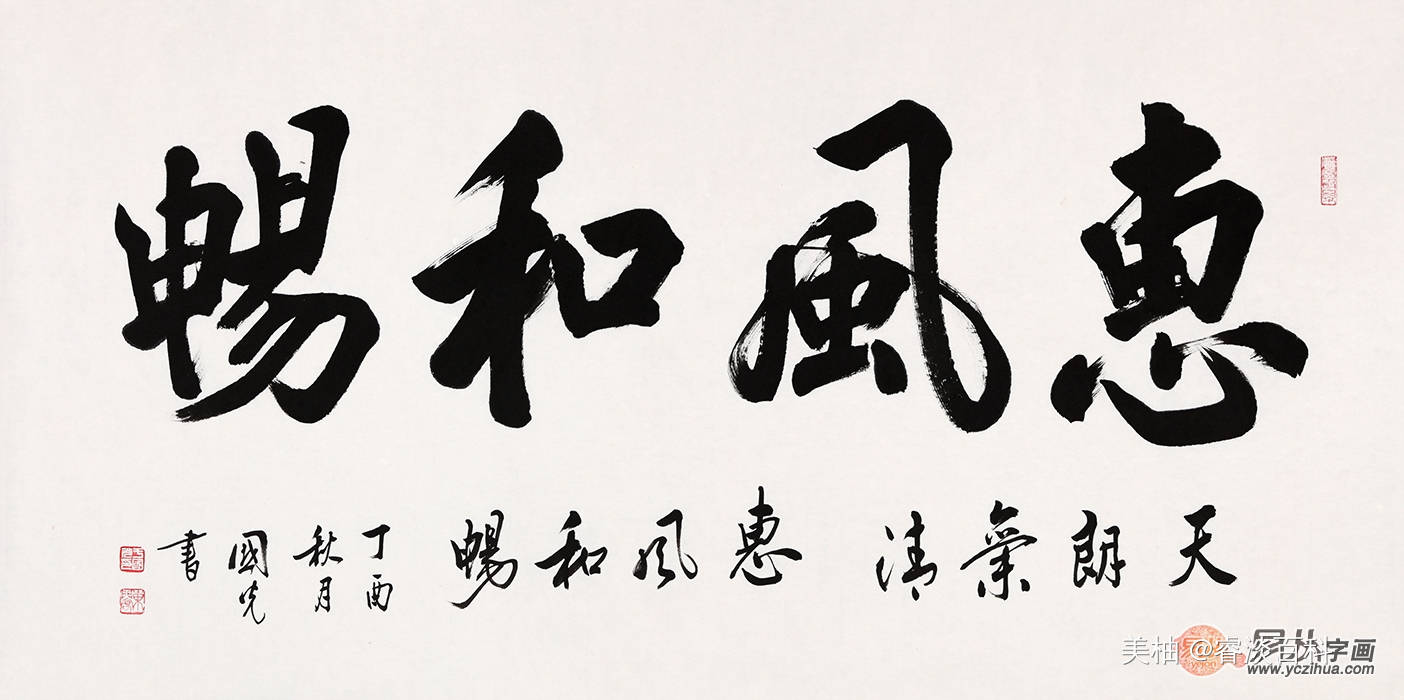 惠風和暢
天朗氣清 惠風和暢
丁酉
秋月
國光
書
美柚 @睿淡百科
字画
www.yczihua.com